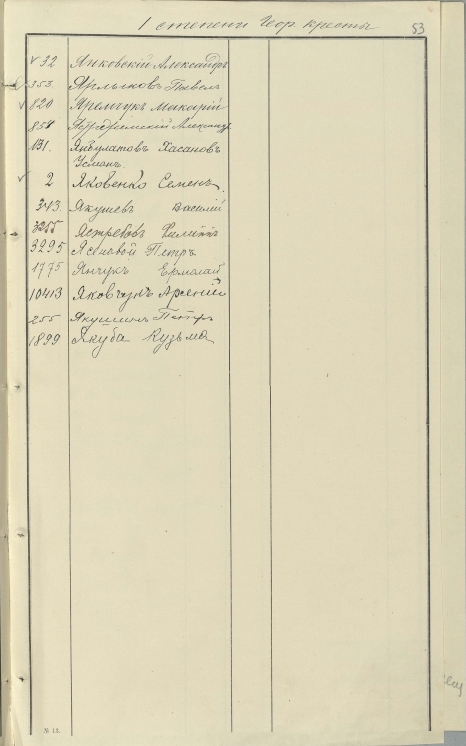 1 степени Геор кресты 53
√ 32 Янковскій Александръ
353 Ярлыковъ Павелъ
√ 820 Яремчукъ Макарій
854 Александр
131. Янбулатовъ Хасановъ
Усманъ.
√ 2 Яковенко Семенъ.
343 Якушевъ Василій
3255 Ястребовъ Филиппъ
3295 Ясеновой Петръ
1775 Янчукъ Ермолай
10413 Яковчукъ Арсеній
255 Якушинъ Петръ
1899 Якуба Кузьма
№ 13.